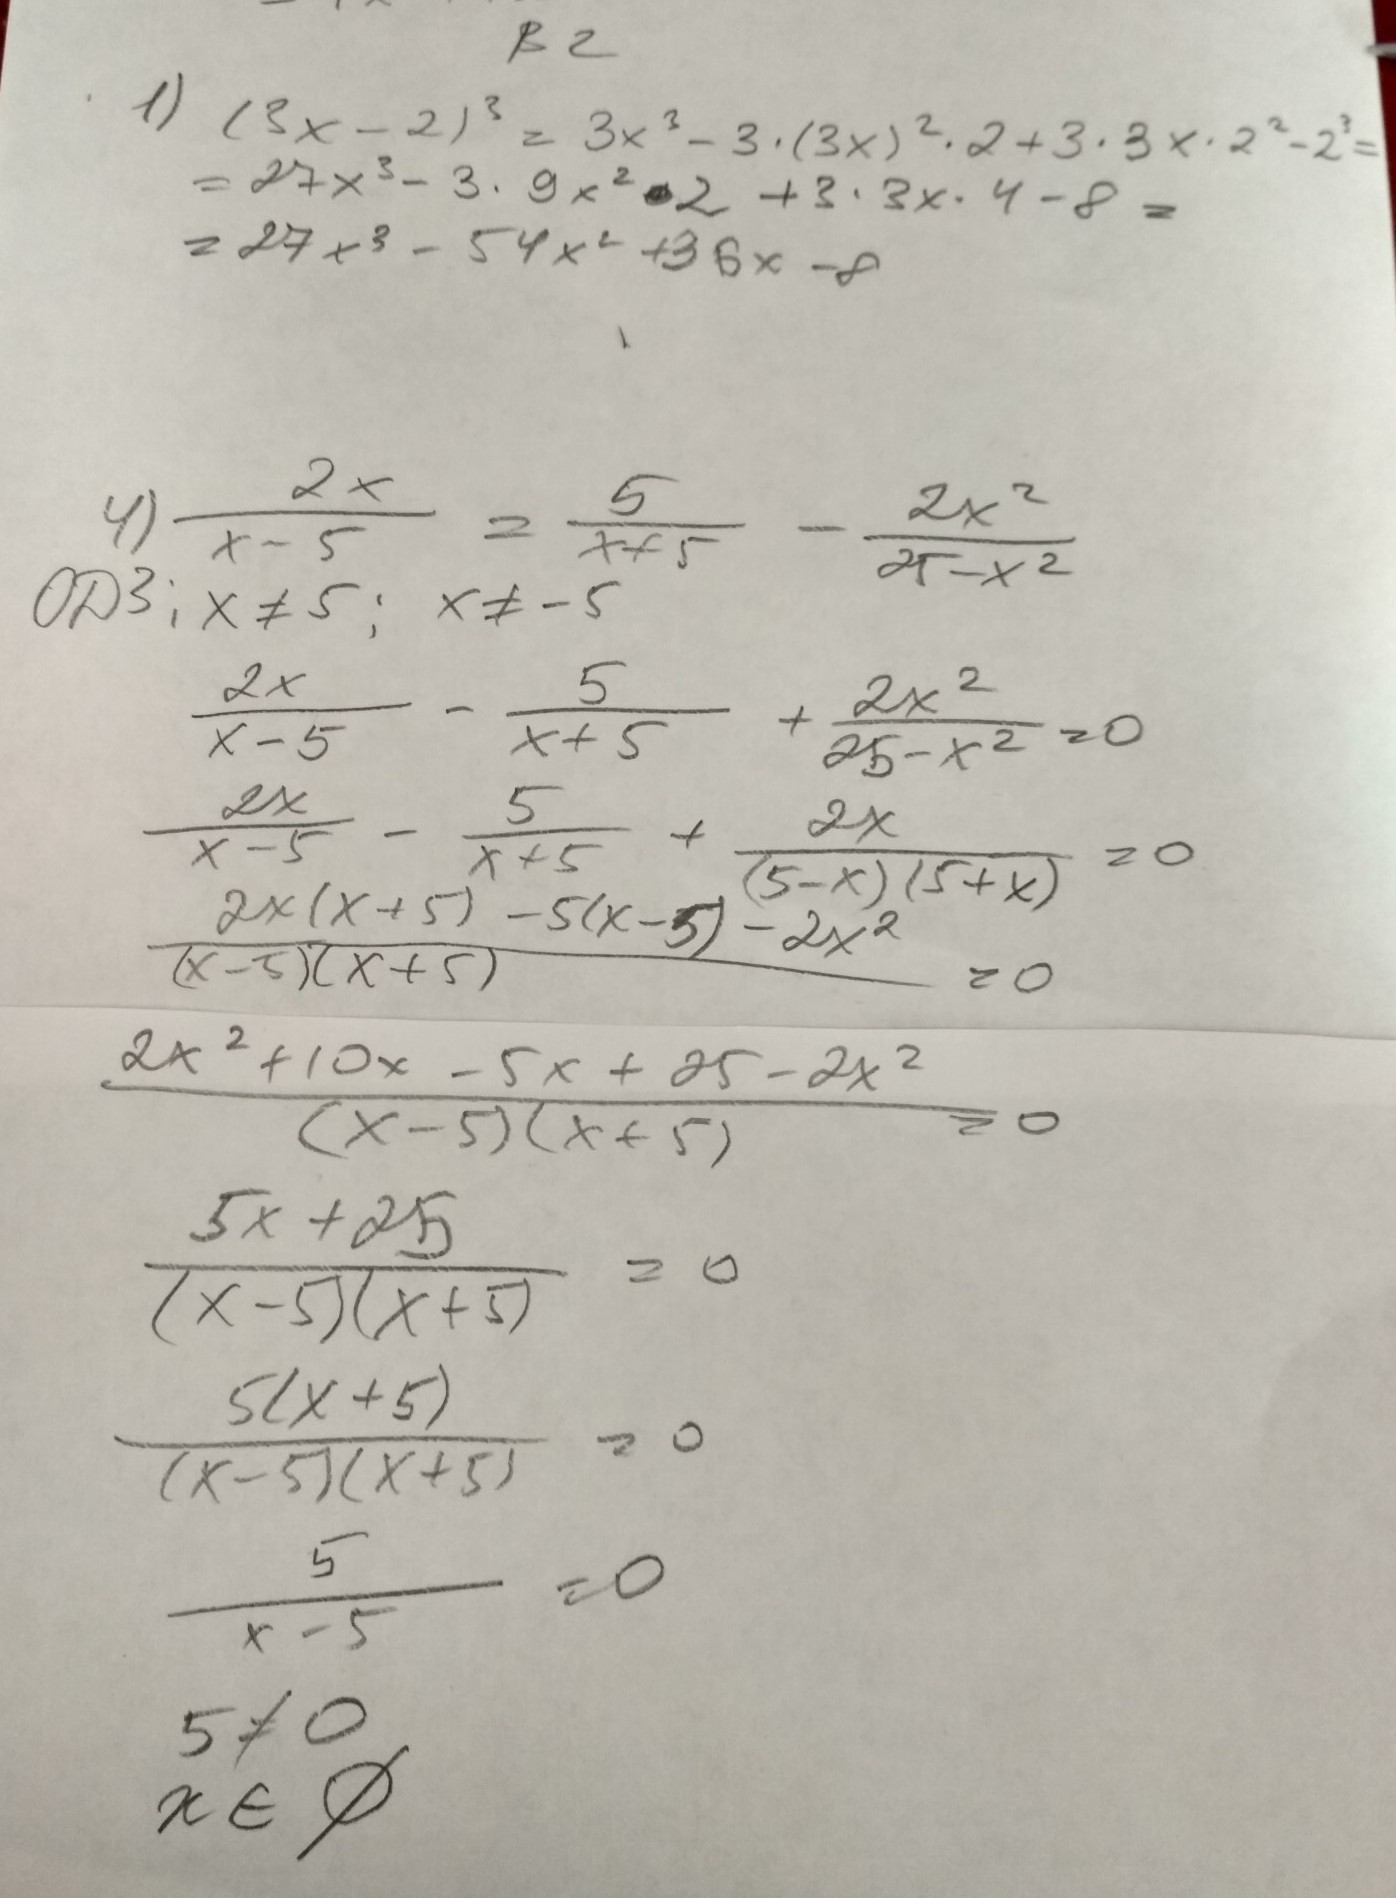 В 2
1) (3x - 2)³ = 3x³ - 3·(3x)²·2 + 3·3x·2² - 2³ =
= 27x³ - 3·9x²·2 + 3·3x·4 - 8 =
= 27x³ - 54x² + 36x - 8
4) 2x/(x - 5) = 5/(x + 5) - 2x²/(25 - x²)
ОДЗ: x ≠ 5; x ≠ -5
2x/(x - 5) - 5/(x + 5) + 2x²/(25 - x²) = 0
2x/(x - 5) - 5/(x + 5) + 2x/((5 - x)(5 + x)) = 0
(2x(x + 5) - 5(x - 5) - 2x²)/((x - 5)(x + 5)) = 0
(2x² + 10x - 5x + 25 - 2x²)/((x - 5)(x + 5)) = 0
(5x + 25)/((x - 5)(x + 5)) = 0
5(x + 5)/((x - 5)(x + 5)) = 0
5/(x - 5) = 0
5 ≠ 0
x ∈ ∅